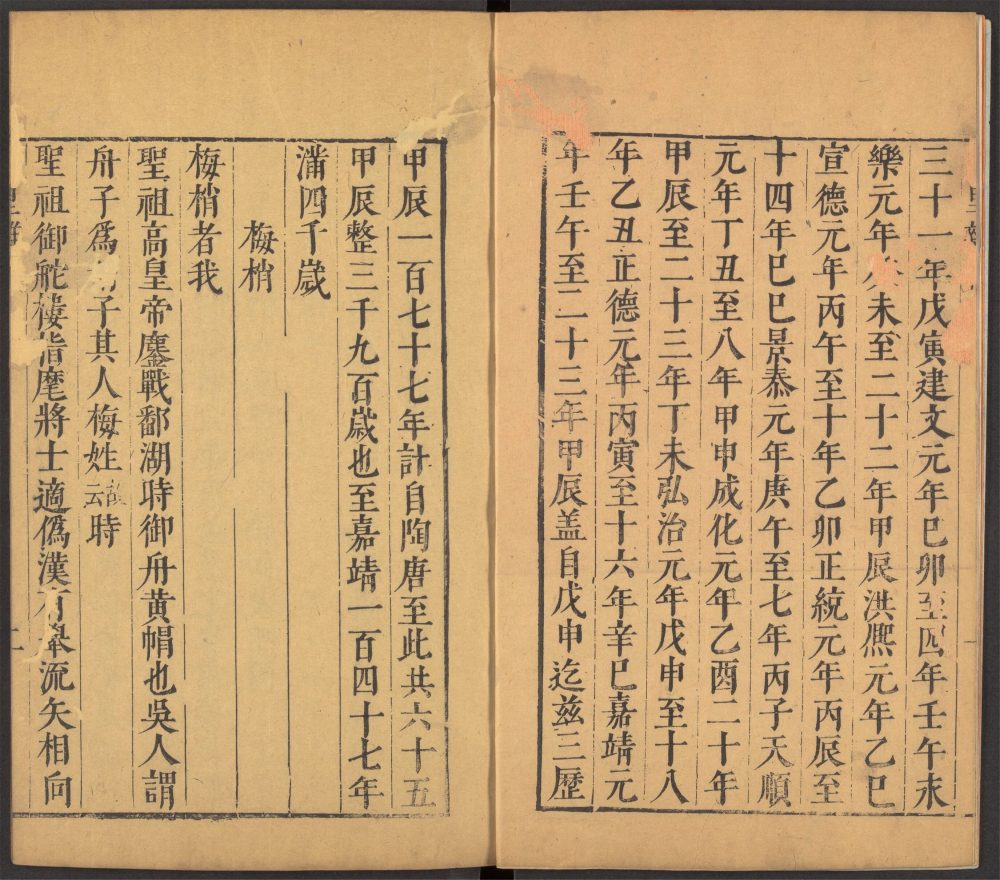 三十一年戊寅建文元年巳卯至四年壬午永
樂元年癸未至二十二年甲辰洪熈元年乙巳
宣德元年丙午至十年乙卯正統元年丙辰至
十四年巳巳景泰元年庚午至七年丙子天順
元年丁丑至八年甲申成化元年乙酉二十年
甲辰至二十三年丁未弘治元年戊申至十八
年乙丑正德元年丙寅至十六年辛巳嘉靖元
年壬午至二十三年甲辰盖自戊申迄兹三歷
甲辰一百七十七年計自陶唐至此共六十五
甲辰整三千九百歲也至嘉靖一百四十七年
滿四千歲
梅梢
梅梢者我
聖祖高皇帝鏖戰鄱湖時御舟黄帽也吳人謂
舟子爲子其人梅姓故云時
聖祖御舵樓指麾將士適僞漢有舉流矢相向